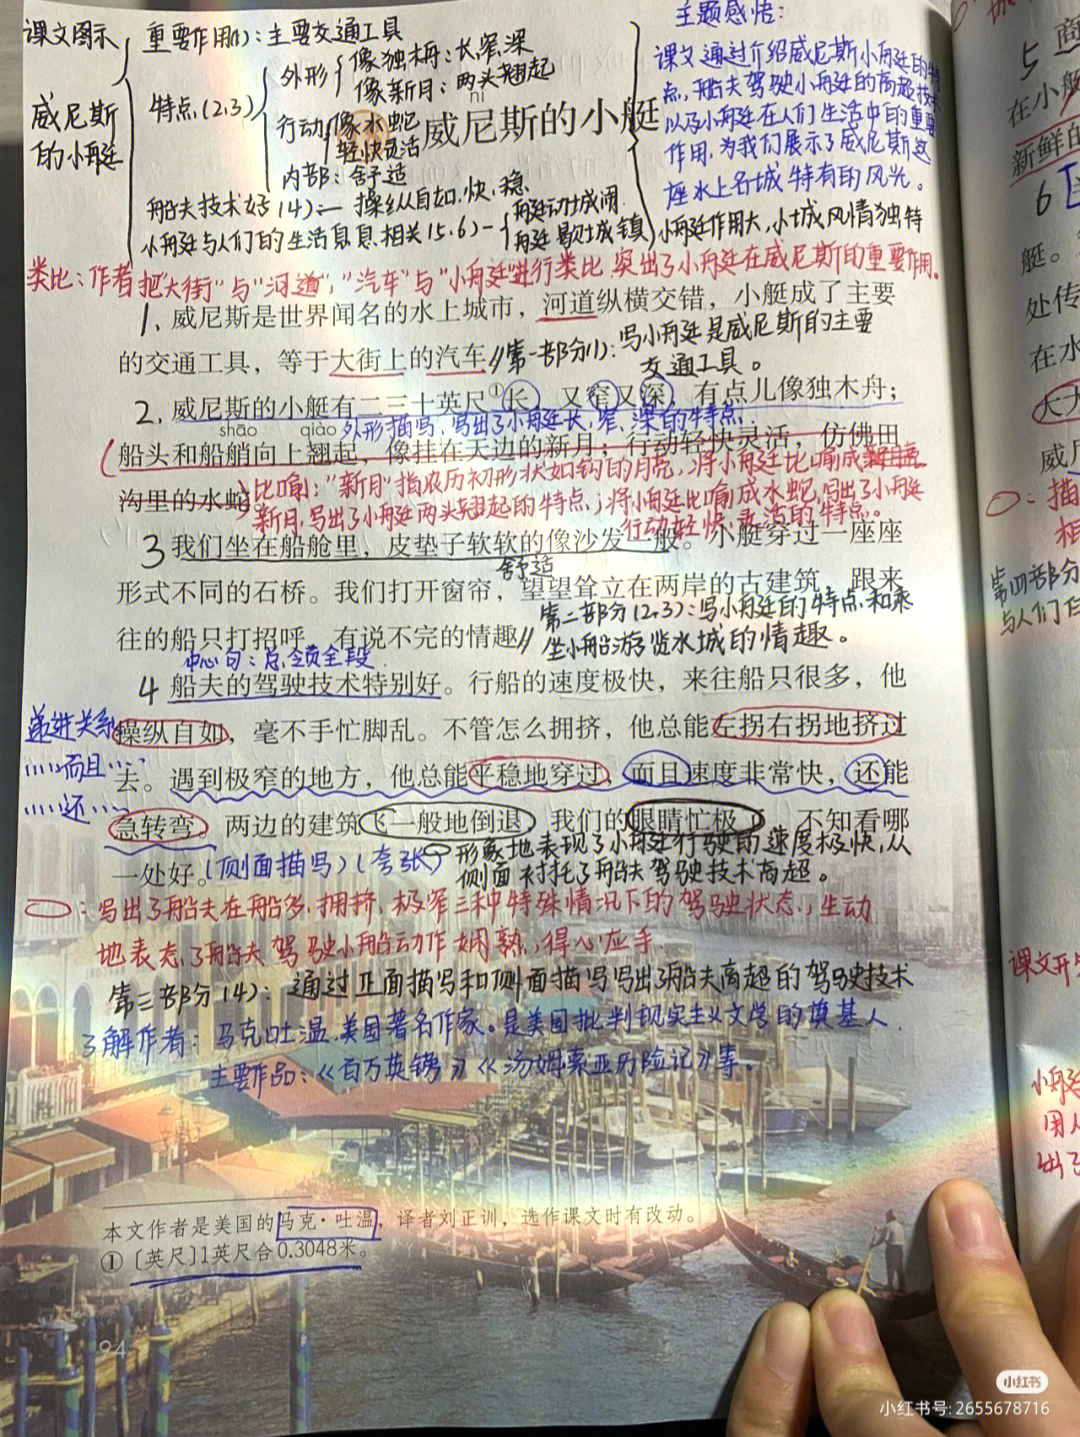 课文图示
威尼斯
的小艇
重要作用(1):主要交通工具
特点(2,3)
外形
像独木舟:长,窄,深
像新月:两头翘起
行动
像水蛇
轻快灵活
内部:舒适
船夫技术好(4)— 操纵自如,快、稳
小艇与人们的生活息息相关(5,6)-
艇动城闹
艇歇城镇
小艇作用大,小城风情独特
主题感悟:
课文通过介绍威尼斯小艇的特
点,船夫驾驶小艇的高超技术
以及小艇在人们生活中的重要
作用,为我们展示了威尼斯这
座水上名城特有的风光。
ní
威尼斯的小艇
类比:作者把"大街"与"河道","汽车"与"小艇"进行类比,突出了小艇在威尼斯的重要作用。
1、威尼斯是世界闻名的水上城市,河道纵横交错,小艇成了主要
的交通工具,等于大街上的汽车。
第一部分(1):写小艇是威尼斯的主要
交通工具。
2、威尼斯的小艇有二三十英尺①长,又窄又深,有点儿像独木舟;
外形描写,写出了小艇长,窄,深的特点
shāo qiào
船头和船艄向上翘起,像挂在天边的新月;行动轻快灵活,仿佛田
沟里的水蛇。
比喻:"新月"指农历初形状如钩的月亮,将小艇比喻成
新月,写出了小艇两头翘起的特点;将小艇比喻成水蛇,写出了小艇
行动轻快灵活的特点。
3 我们坐在船舱里,皮垫子软软的像沙发一般。小艇穿过一座座
舒适
形式不同的石桥。我们打开窗帘,望望耸立在两岸的古建筑,跟来
往的船只打招呼,有说不完的情趣。
第二部分(2,3):写小艇的特点和乘
坐小船游览水城的情趣。
中心句:总领全段
4 船夫的驾驶技术特别好。行船的速度极快,来往船只很多,他
操纵自如,毫不手忙脚乱。不管怎么拥挤,他总能左拐右拐地挤过
去。遇到极窄的地方,他总能平稳地穿过,而且速度非常快,还能
急转弯。两边的建筑飞一般地倒退,我们的眼睛忙极了,不知看哪
一处好。
递进关系
……而且……
……还……
(侧面描写)(夸张)
形象地表现了小艇行驶的速度极快,从
侧面衬托了船夫驾驶技术高超。
:写出了船夫在船多,拥挤,极窄三种特殊情况下的驾驶状态,生动
地表态了船夫驾驶小船动作娴熟,得心应手.
第三部分(4):通过正面描写和侧面描写写出了船夫高超的驾驶技术
了解作者:马克吐温,美国著名作家。是美国批判现实主义文学的奠基人.
主要作品:《百万英镑》《汤姆索亚历险记》等。
本文作者是美国的马克·吐温,译者刘正训,选作课文时有改动。
①〔英尺〕1英尺合0.3048米。
94
5 商
在小艇
新鲜的
6
艇。
处传
在水
大大
威尼
:描
第四部分
与人们的
课文开
小艇
用人
出了
小红书
小红书号: 2655678716